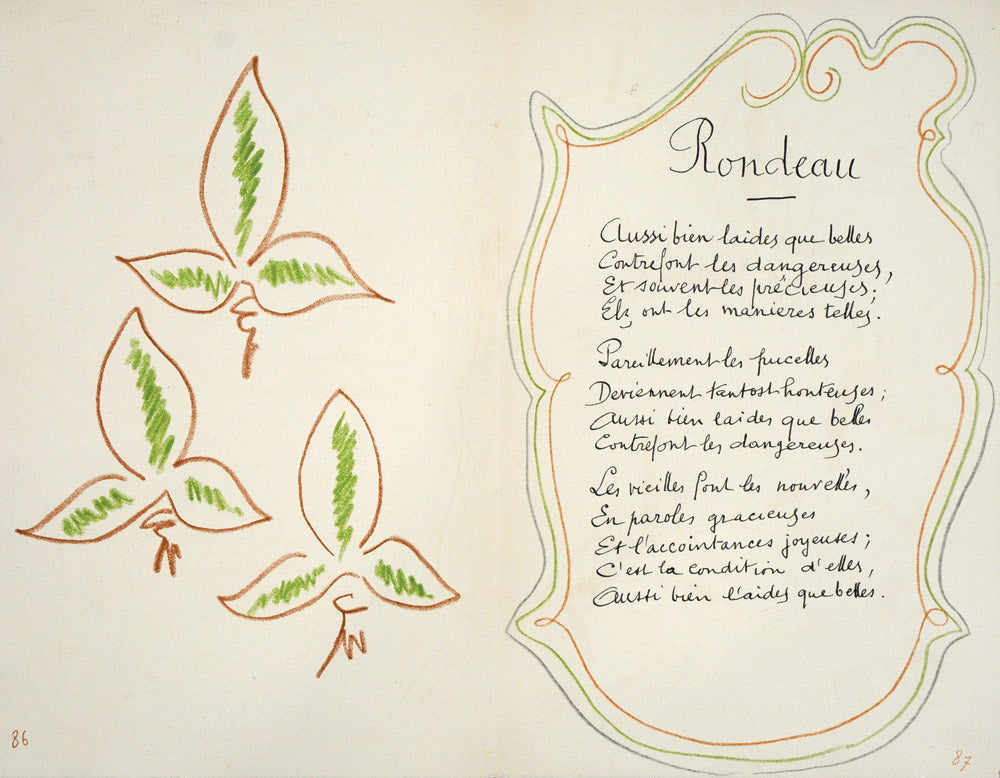 86
Rondeau
Aussi bien laides que belles
Contrefont les dangereuses,
Et souvent les précieuses;
Elz ont les manières telles.
Pareillement les pucelles
Deviennent tantost honteuses;
Aussi bien laides que belles
Contrefont les dangereuses.
Les vieilles font les nouvelles,
En paroles gracieuses
Et l'accointances joyeuses;
C'est la condition d'elles,
Aussi bien l'aides que belles.
87